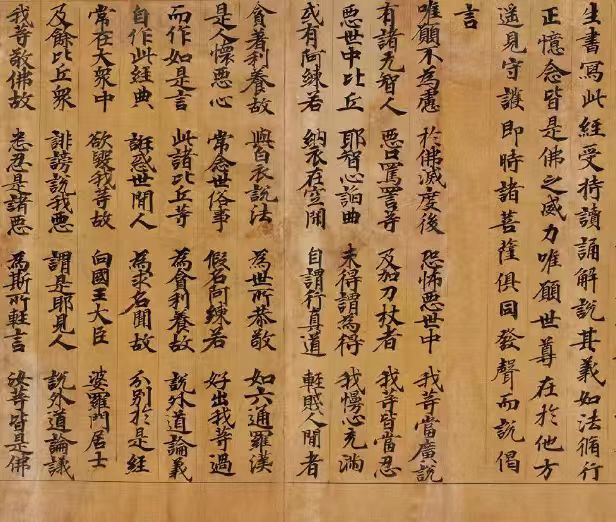 生書寫此經受持讀誦解說其義如法脩行
正憶念皆是佛之威力唯願世尊在於他方
遥見守護即時諸菩薩俱同發聲而說偈
言
唯願不為慮 於佛滅度後 恐怖惡世中 我等當廣說
有諸无智人 惡口罵詈等 及加刀杖者 我等皆當忍
惡世中比丘 耶智心諂曲 未得謂為得 我慢心充滿
或有阿練若 納衣在空閑 自謂行真道 輕賤人間者
貪著利養故 與白衣說法 為世所恭敬 如六通羅漢
是人懷惡心 常念世俗事 假名阿練若 好出我等過
而作如是言 此諸比丘等 為貪利養故 說外道論義
自作此經典 誑惑世間人 為求名聞故 分別於是經
常在大衆中 欲毀我等故 向國王大臣 婆羅門居士
及餘比丘衆 誹謗說我惡 謂是耶見人 說外道論議
我等敬佛故 悉忍是諸惡 為斯所輕言 汝等皆是佛